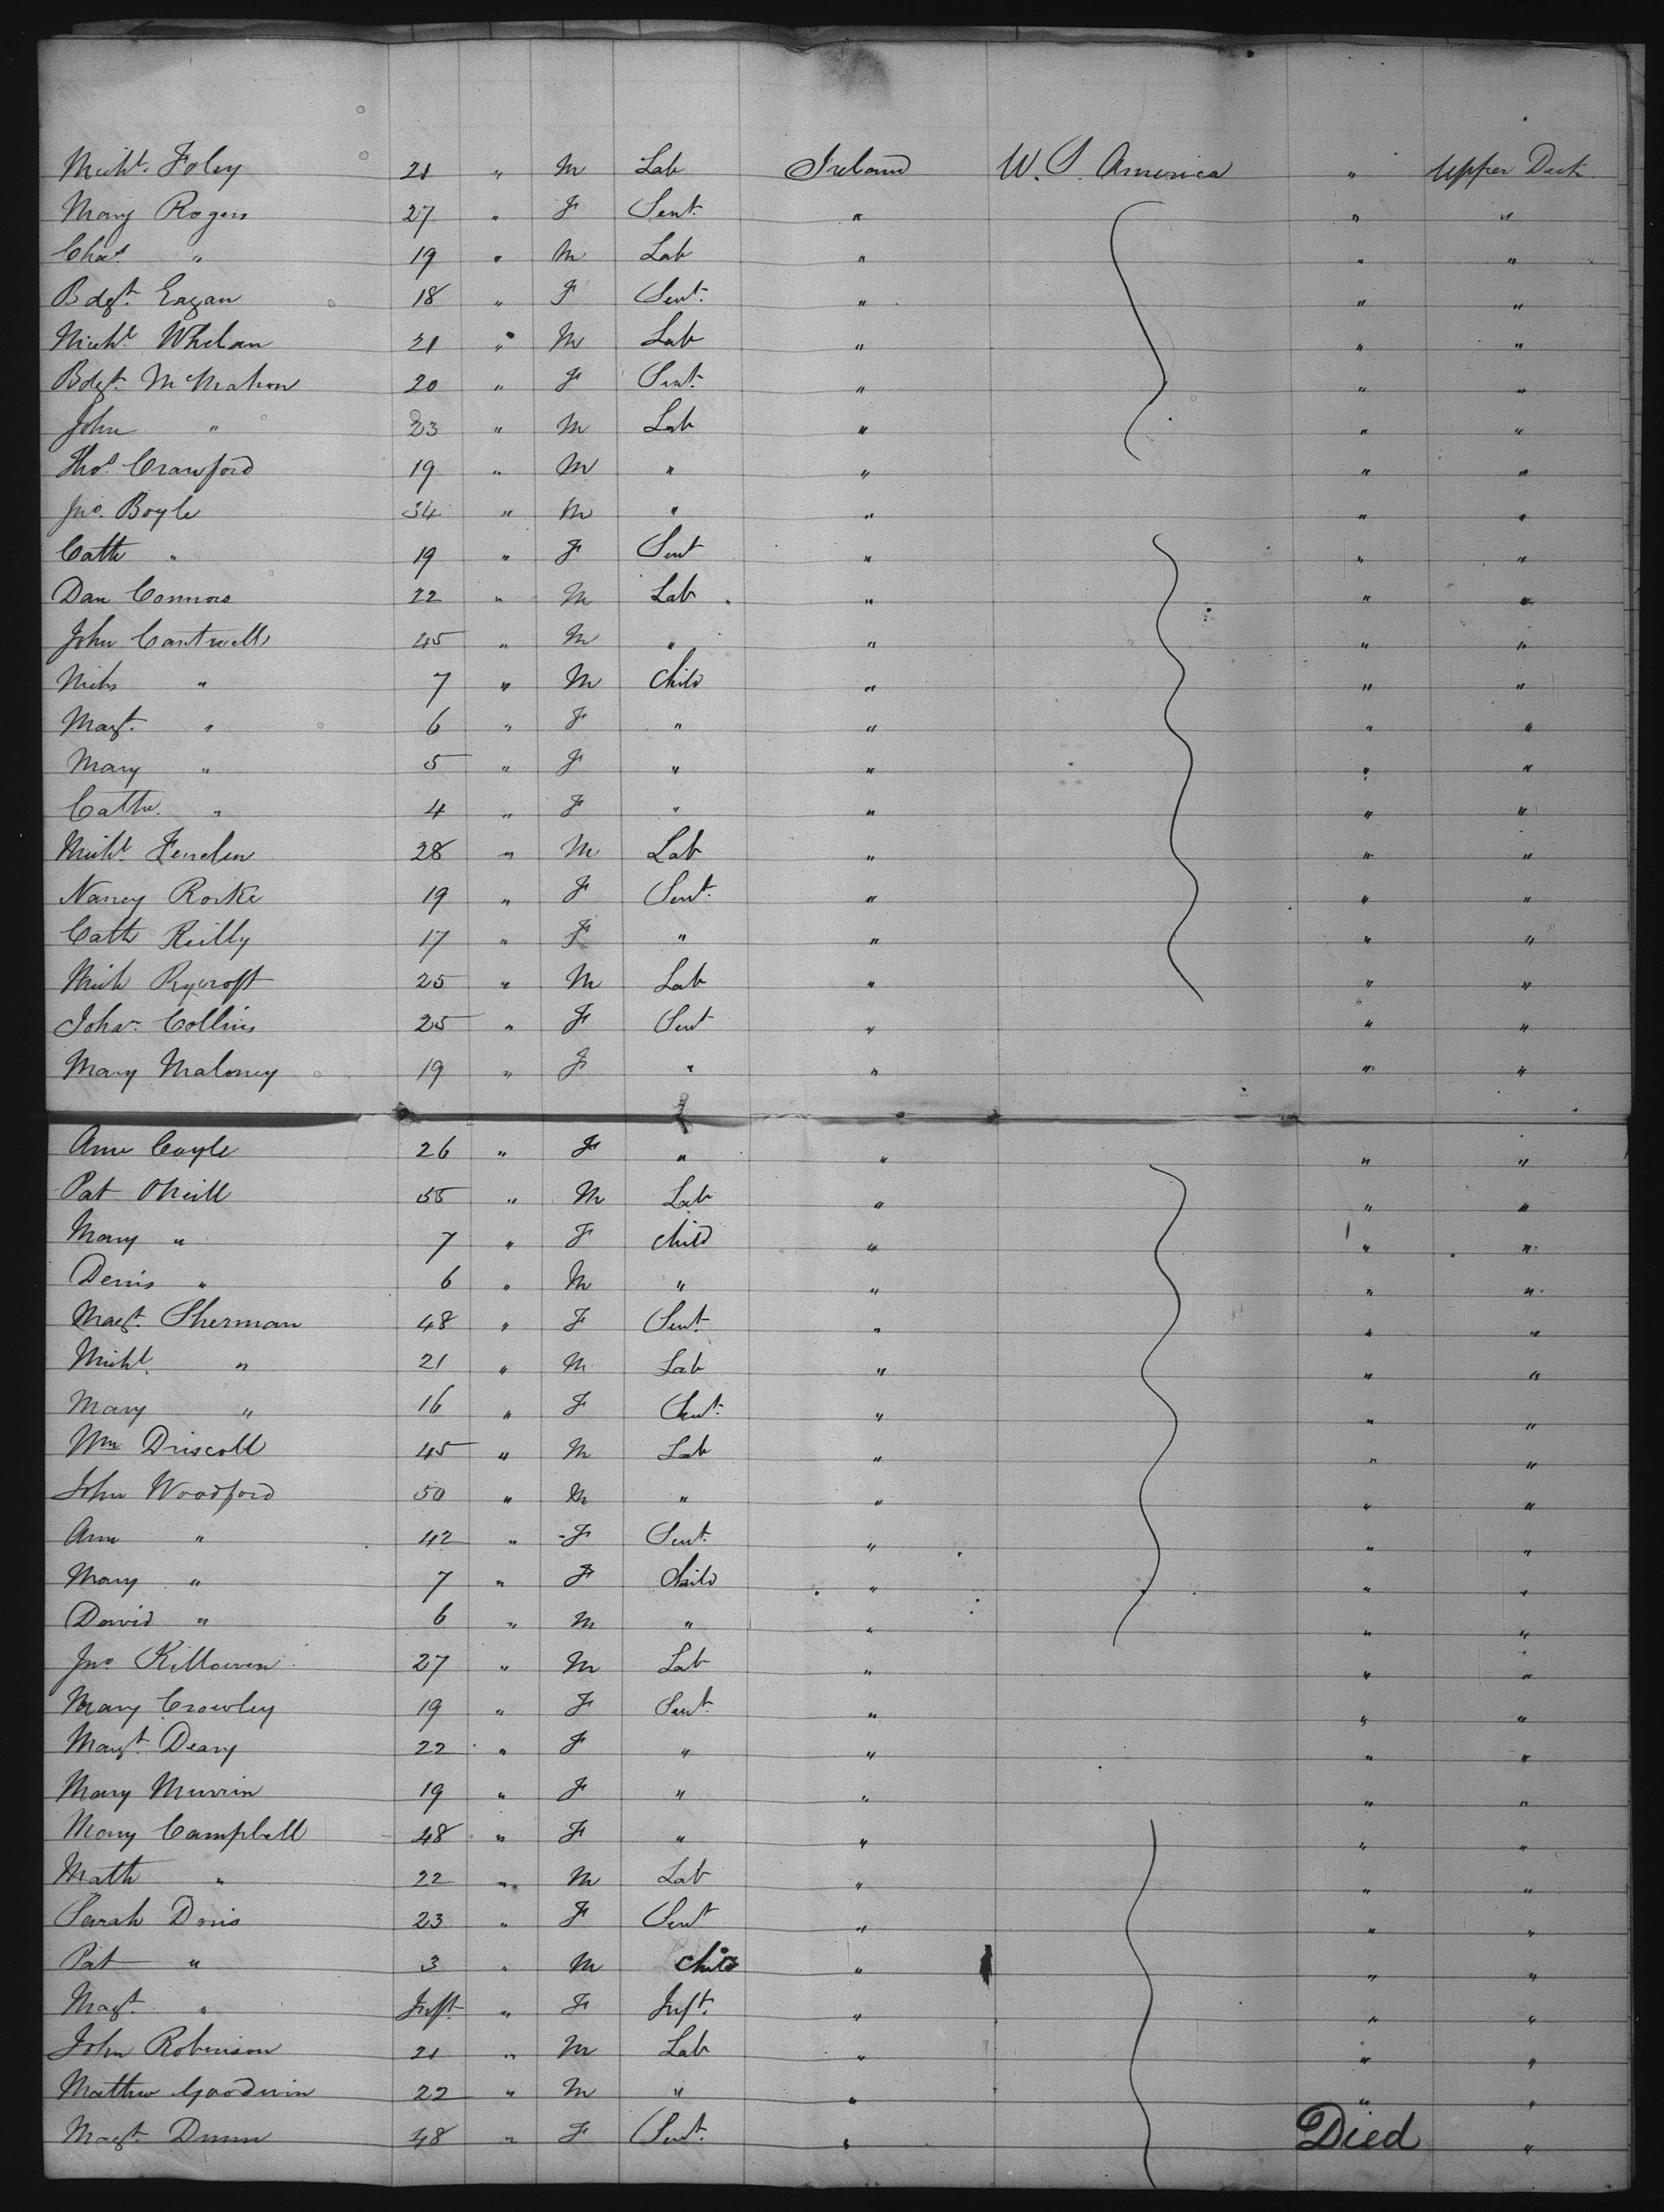 Michl. Foley 21 " M Lab Ireland U. S. America " Upper Deck
Mary Rogers 27 " F Sert. " " "
Chas. " 19 " M Lab " " "
Bdgt. Eagan 18 " F Sert. " " "
Michl. Whelan 21 " M Lab " " "
Bdgt. McMahon 20 " F Sert. " " "
John " 23 " M Lab " " "
Thos. Crawford 19 " M " " " "
Jno. Boyle 34 " M " " " "
Cath " 19 " F Sert " " "
Dan Connors 22 " M Lab " " "
John Cantwell 45 " M " " " "
Nichs " 7 " M Child " " "
Magt. " 6 " F " " " "
Mary " 5 " F " " " "
Cathe. " 4 " F " " " "
Michl. 28 " M Lab " " "
Nancy Rorke 19 " F Sert. " " "
Cath Reilly 17 " F " " " "
Mich Rycroft 25 " M Lab " " "
Joha. Collins 25 " F Sert " " "
Mary Maloney 19 " F " " " "
Ann Coyle 26 " F " " " "
Pat ONeill 55 " M Lab " " "
Mary " 7 " F Child " " "
Denis " 6 " M " " " "
Magt. Sherman 48 " F Sert. " " "
Michl. " 21 " M Lab " " "
Mary " 16 " F Sert. " " "
Wm Driscoll 45 " M Lab " " "
John Woodford 50 " M " " " "
Ann " 42 " F Sert. " " "
Mary " 7 " F Child " " "
David " 6 " M " " " "
Jno. Killowen 27 " M Lab " " "
Mary Crowley 19 " F Sert. " " "
Magt. Deary 22 " F " " " "
Mary Murrin 19 " F " " " "
Mary Campbell 48 " F " " " "
Math " 22 " M Lab " " "
Sarah Doris 23 " F Sert " " "
Pat " 3 " M Child " " "
Magt. " Inft. " F Inft. " " "
John Robinson 21 " M Lab " " "
Mathew Goodwin 22 " M " " " "
Magt. Dunn 48 " F Sert. " Died "